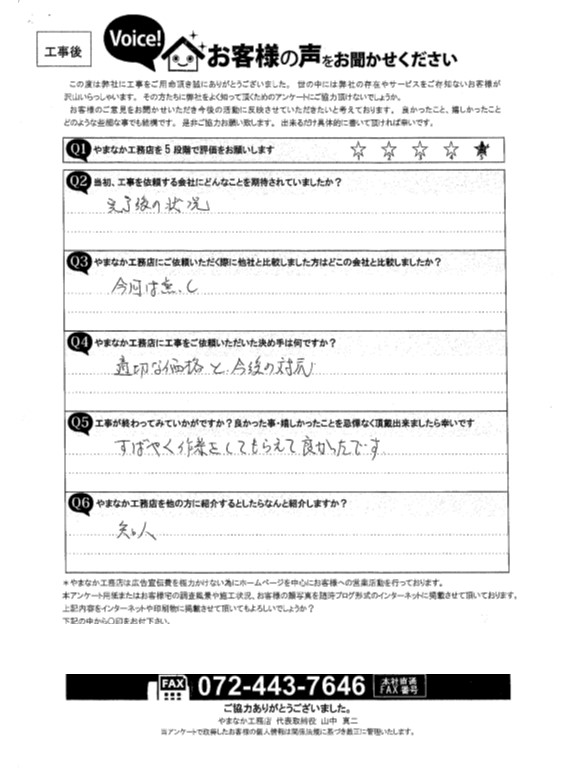 工事後
Voice!
お客様の声をお聞かせください
この度は弊社に工事をご用命頂き誠にありがとうございました。世の中には弊社の存在やサービスをご存知ないお客様が
沢山いらっしゃいます。その方たちに弊社をよく知って頂くためのアンケートにご協力頂けないでしょうか。
お客様のご意見をお聞かせいただき今後の活動に反映させていただきたいと考えております。良かったこと、嬉しかったこと
どのような些細な事でも結構です。是非ご協力お願い致します。出来るだけ具体的に書いて頂ければ幸いです。
Q1 やまなか工務店を5段階で評価をお願いします ☆ ☆ ☆ ☆ ★
Q2 当初、工事を依頼する会社にどんなことを期待されていましたか?
完了後の状況
Q3 やまなか工務店にご依頼いただく際に他社と比較しました方はどこの会社と比較しましたか?
今回は無し
Q4 やまなか工務店に工事をご依頼いただいた決め手は何ですか?
適切な価格と、今後の対応
Q5 工事が終わってみていかがですか?良かった事・嬉しかったことを忌憚なく頂戴出来ましたら幸いです
すばやく作業をしてもらえて良かったです
Q6 やまなか工務店を他の方に紹介するとしたらなんと紹介しますか?
知人
*やまなか工務店は広告宣伝費を極力かけない為にホームページを中心にお客様への営業活動を行っております。
本アンケート用紙またはお客様宅の調査風景や施工状況、お客様の顔写真を随時ブログ形式のインターネットに掲載させて頂いております。
上記内容をインターネットや印刷物に掲載させて頂いてもよろしいでしょうか?
下記の中から〇印をお付下さい。
FAX 072-443-7646 本社直通 FAX番号
ご協力ありがとうございました。
やまなか工務店 代表取締役 山中 真二
※アンケートで取得したお客様の個人情報は関係法規に基づき厳正に管理いたします。